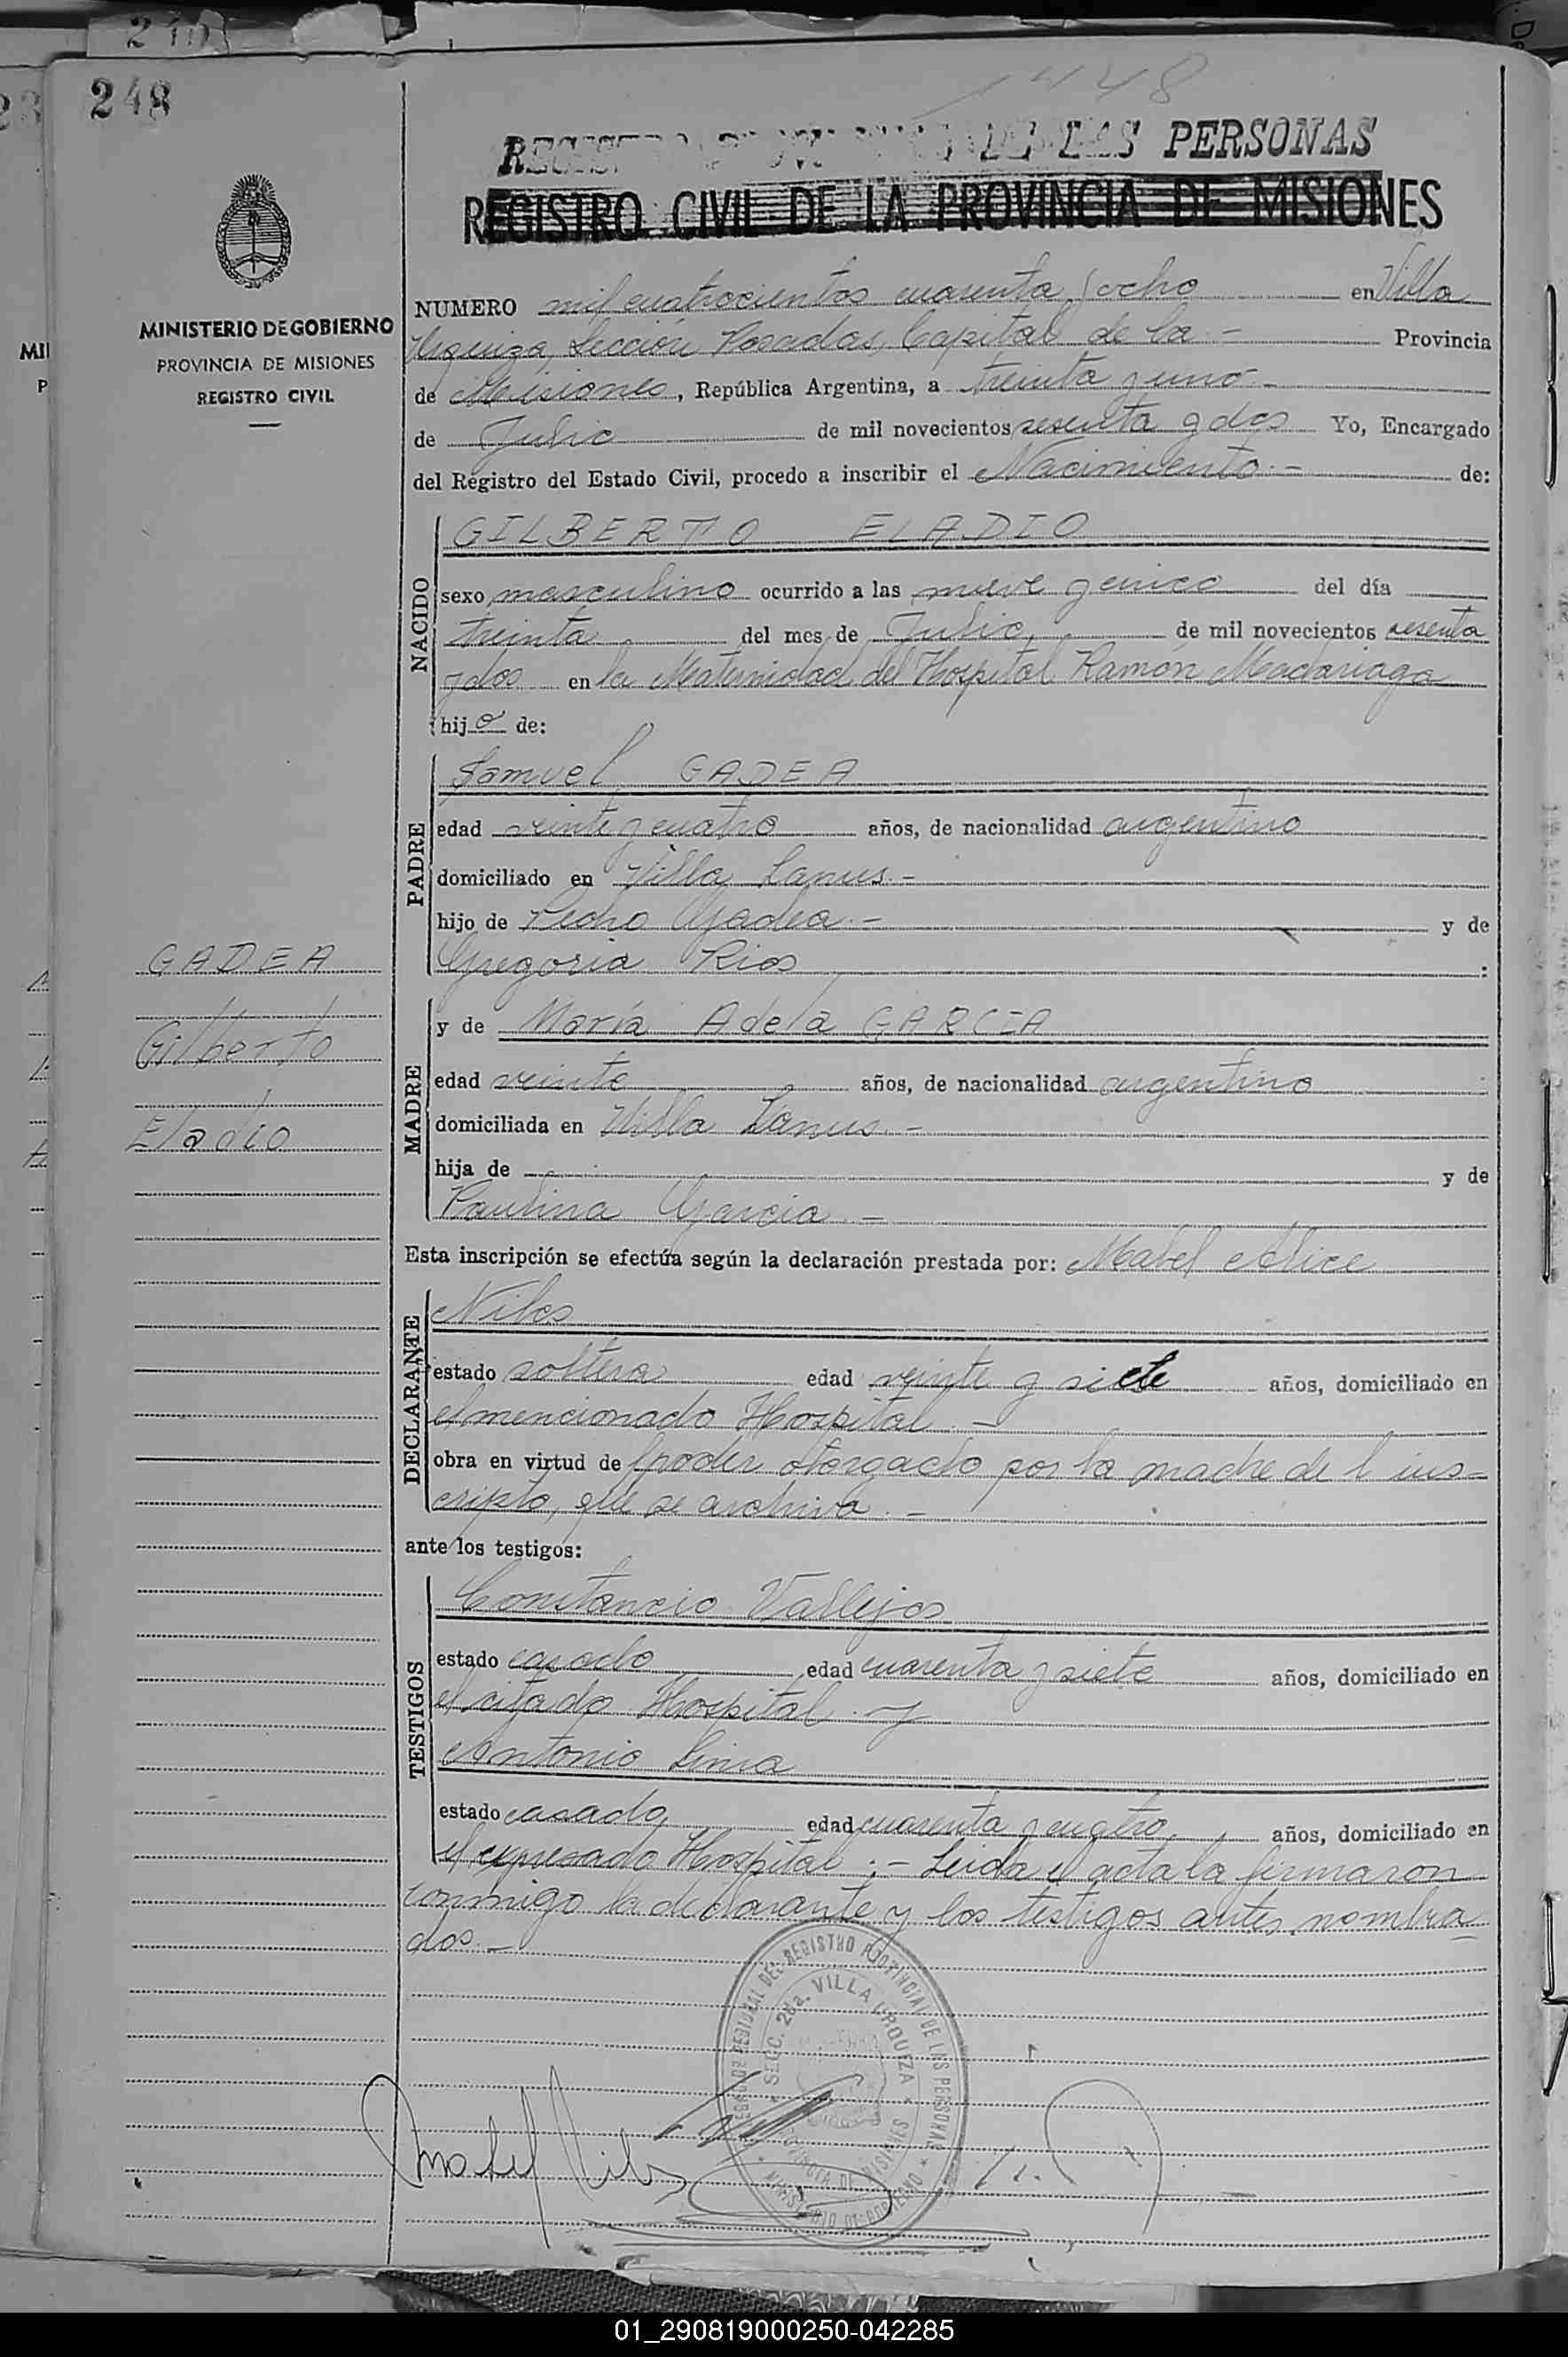 248
1448
REGISTRO DE LAS PERSONAS
REGISTRO CIVIL DE LA PROVINCIA DE MISIONES
MINISTERIO DE GOBIERNO
PROVINCIA DE MISIONES
REGISTRO CIVIL
NUMERO mil cuatrocientos cuarenta y ocho en Villa
Urquiza, Sección Posadas, Capital de la - Provincia
de Misiones, República Argentina, a treinta y uno
de Julio de mil novecientos sesenta y dos Yo, Encargado
del Registro del Estado Civil, procedo a inscribir el Nacimiento - de:
NACIDO
GILBERTO ELADIO
sexo masculino ocurrido a las nueve y cinco del día
treinta del mes de Julio, de mil novecientos sesenta
y dos en la Maternidad del Hospital Ramón Madariaga
hijo de:
PADRE
Samuel GADEA
edad veinte y cuatro años, de nacionalidad argentino
domiciliado en Villa Lanus.-
hijo de Pedro Gadea.- y de
Gregoria Rios :
GADEA
Gilberto
Eladio
MADRE
y de María Adela GARCIA
edad veinte años, de nacionalidad argentina
domiciliada en Villa Lanus.-
hija de y de
Paulina Garcia.-
Esta inscripción se efectúa según la declaración prestada por: Mabel Alice
DECLARANTE
Niles
estado soltera edad veinte y siete años, domiciliado en
el mencionado Hospital.-
obra en virtud de poder otorgado por la madre del ins-
cripto, que se archiva.-
ante los testigos:
TESTIGOS
Constancio Vallejos
estado casado edad cuarenta y siete años, domiciliado en
el citado Hospital. y
Antonio Lima
estado casado, edad cuarenta y cuatro, años, domiciliado en
el expresado Hospital.- Leida el acta la firmaron
conmigo la declarante y los testigos antes nombra
dos.-
REGISTRO PROVINCIAL DE LAS PERSONAS
SECC. 28a. VILLA URQUIZA
PROVINCIA DE MISIONES
MINISTERIO DE GOBIERNO
Mabel Niles
01_290819000250-042285